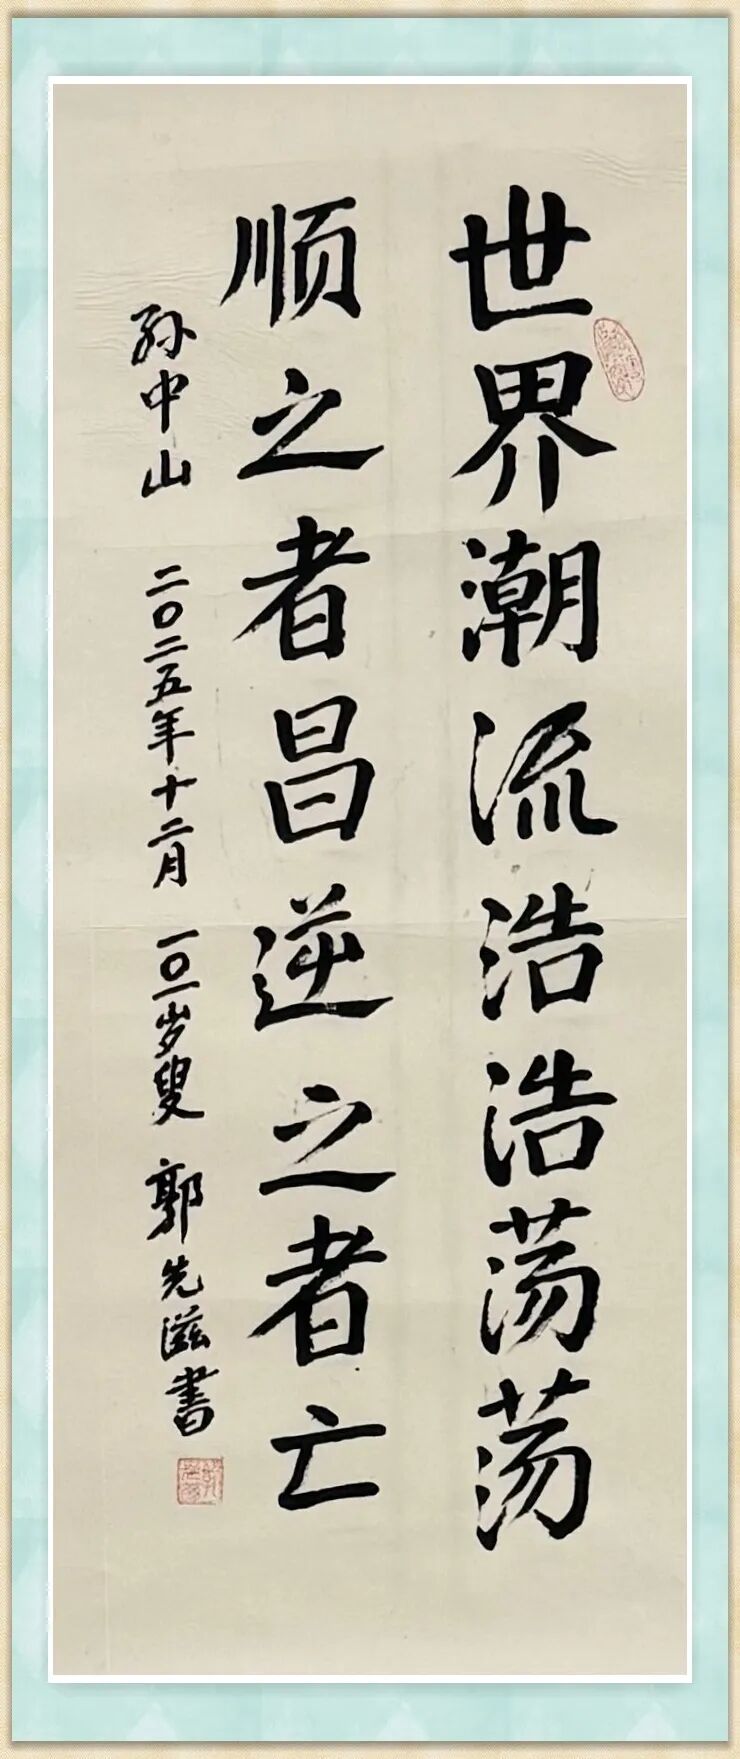 世界潮流浩浩荡荡
顺之者昌逆之者亡
孙中山 二〇二五年十二月 一〇一岁叟 郭先滋書